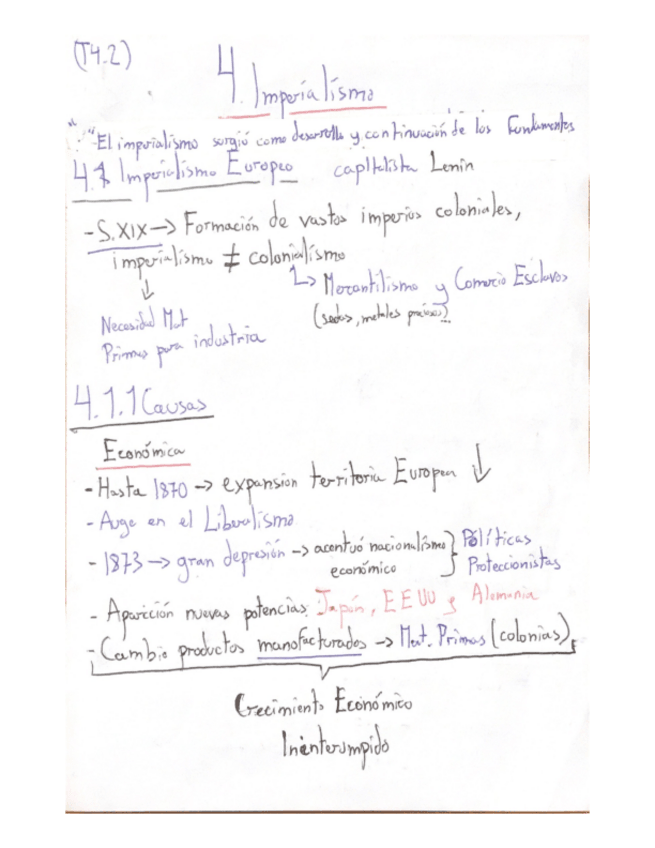 (T4.2)
4. Imperialismo
"El imperialismo surgió como desarrollo y continuación de los Fundamentos
4.1 Imperialismo Europeo capitalista Lenin
- S.XIX → Formación de vastos imperios coloniales,
imperialismo ≠ colonialismo
↓ ↳ Mercantilismo y Comercio Esclavos
(sedas, metales preciosos)
Necesidad Mat
Primas para industria
4.1.1 Causas
Económica
- Hasta 1870 → expansión territoria Europea ↓
- Auge en el Liberalismo
- 1873 → gran depresión → acentuó nacionalismo económico } Políticas Proteccionistas
- Aparición nuevas potencias: Japón, EEUU y Alemania
- Cambio productos manofacturados → Mat. Primas (colonias)
Crecimiento Económico
Ininterumpido